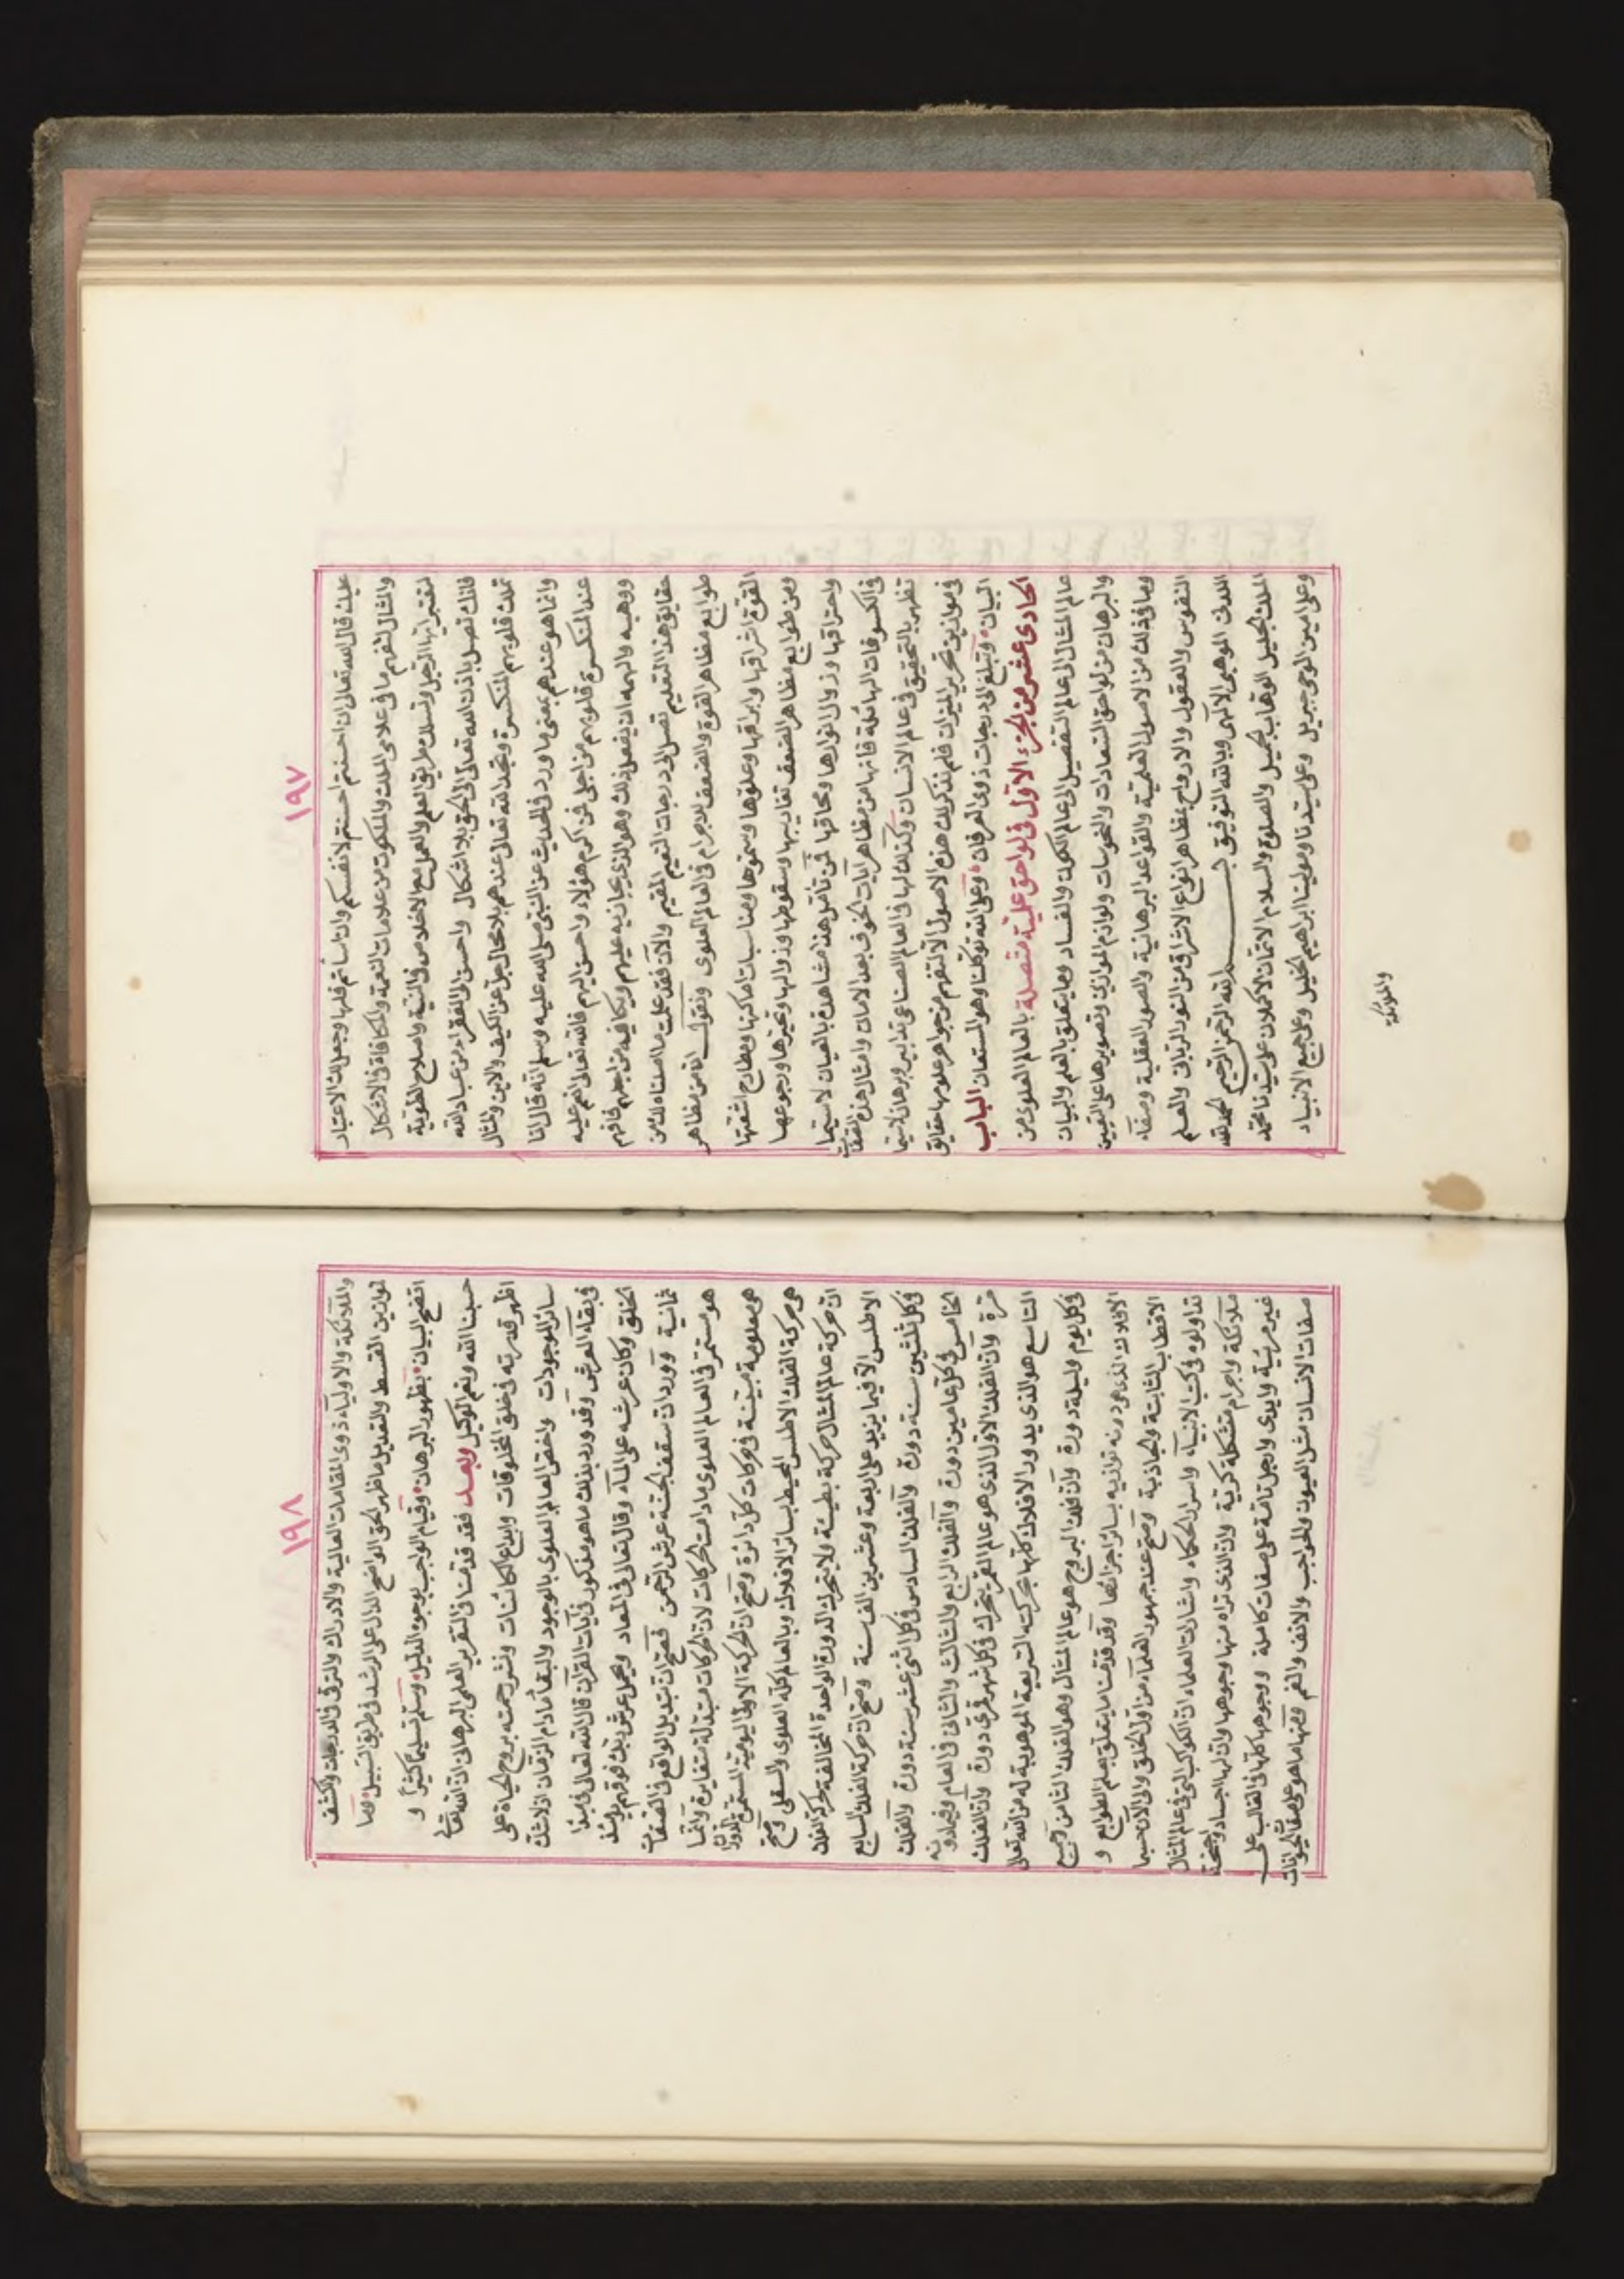 ١٩٧
عليك قال الله تعالى ان احسنتم احسنتم لانفسكم وان اسأتم فلها وجعل لك الاعتبار
والمثال لتفهم ما فى علامى الملك والملكوت من علامات النعمة والمكافاة فى الاشكال
لتعتبر ايها الرجل وتسلك طريق العلم والعمل مع الاخلاص فى النية واصلاح الطوية
فانك تصل باذن الله تعالى الى الحق بلا اشكال واحسن الى الفقراء من عباد الله
تملك قلوبهم المنكسرة وتجد الله تعالى عندهم بلا محال جل عن الكيف والاين والمثال
وانما هو عندهم بمعنى ما ورد فى الحديث عن النبى صلى الله عليه وسلم انه قال انا
عند المنكسرة قلوبهم من اجلى فمن اكرم هؤلاء واحسن اليهم فالله تعالى انعم عليه
ووهبه والهمه ان يفعل ذلك وهو الذى يجازيه عليهم ويكافيه من اجلهم فافهم
حقايق هذا التقليم تصل الى درجات النعيم المقيم والآن فقد علمت ما اصلناه لك من
طوابع مظاهر القوة والضعف للاجرام فى العالم العلوى ونقول ان من مظاهر
القوة اشراقها وابراقها وعلوها وسموها ومناسبات اماكنها ومطارح اشعتها
ومن طوابع مظاهر الضعف تغاربها وسقوطها وزوالها وتحيزها ورجوعها
واحتراقها وزوال انوارها ومحاقها فمن تأمل هذا مشاهدة بالعيان لاسيما
فى الكسوفات الهائلة فانها من مظاهر آيات الخوف بعد الامان وامثال هذه الصفات
تظهر بالتحقيق فى عالم الانسان وكذلك لها فى العالم الصناعى تدابير وبرهان لاسيما
فى موازين تحرير الميزان فلم نذكر لك هذه الاصول الا لتفهم من جواهر علومها حقايق
البيان وتبلغ الى درجات ذوى العرفان وعلى الله توكلنا وهو المستعان الباب
الحادى عشر من الجزء الاول فى لواحق علمية متصلة بالعالم العلوى من
عالم المثال الى عالم التفصيل الى عالم الكون والفساد وما يتعلق بالعلم والبيان
والبرهان من لواحق السعادات والنحوسات ولوازم الموازين وتصويرها على التعيين
وما فى ذلك من الاصول العلمية والقواعد البرهانية والصور العقلية وصفاء
النفوس والعقول والارواح بمظاهر انواع الاشراق من النور الربانى والعلم
اللدنى الموهبى الالهى وبالله التوفيق بسم الله الرحمن الرحيم الحمد لله
الملك الجليل الوهاب الجميل والصلوة والسلام الاتمان الاكملان على سيدنا محمد
وعلى امين الوحى جبريل وعلى سيدنا ومولينا ابراهيم الخليل وعلى جميع الانبياء
والملائكة
١٩٨
والملائكة والاولياء ذوى المقامات العالية والادراك والترقى فى الدرجات والكشف
لموازين القسط والتعديل ما ظهر الحق الواضح الدال على الرشد فى طريق السبيل وما
اتضح البيان بظهور البرهان وقيام الواجب بوجود الدليل وسلم تسليما كثيرا و
حسبنا الله ونعم الوكيل وبعد فقد قدمنا فى التقرير العلمى البرهانى ان الله تعالى
اظهر قدرته فى خلق المخلوقات وابداع الكائنات ونشر رحمته بروح الحياة على
سائر الموجودات واخص العالم العلوى بالوجود والبقاء مادام الزمان اذ لاشك
فى بقاء العرش وقد ورد بذلك ما هو مذكور فى آيات القرآن قال الله تعالى فى مبتدا
الخلق وكان عرشه على الماء وقال تعالى فى المعاد ويحمل عرش ربك فوقهم يومئذ
ثمانية وورد ان سقف الجنة عرش الرحمن فصح ان تبديل الواقع فى الصفات
هو مستمر فى العالم العلوى مادامت الحركات لان الحركات متبدلة متغايرة وانما
هى معلومة مبينة فى حركات كل دائرة وصح ان الحركة الاولى اليومية المستمرة الدوران
هى حركة الفلك الاطلس المحيط بسائر الافلاك وبالعالم كله العلوى والسفلى وصح
ان حركة عالم المثال حركة بطيئة ولا يتحرك الدورة الواحدة المخالفة لحركة الفلك
الاطلس الا فيما يزيد على اربعة وعشرين الف سنة وصح ان حركة الفلك السابع
فى كل ثلثين سنة دورة والفلك السادس فى كل اثنى عشر سنة دورة والفلك
الخامس فى كل عامين دورة والفلك الرابع والثالث والثانى فى العام
مرة وان الفلك الاول الذى هو عالم القمر يتحرك فى كل شهر قمرى دورة وان الفلك
التاسع هو الذى يدور الافلاك كلها بحركته السريعة الموهوبة له من الله تعالى
فى كل يوم وليلة دورة وان فلك البروج هو عالم المثال وهو الفلك الثامن وجميع
الافلاك الذى هو دونه توازيه بسائر اجزائها وقد قدمنا ما يتعلق بعلم الطوابع و
الاقطاب الثابتة والجاذبة وصح عند جمهور العلماء من اول الخلق والى الآن حسبما
تداولوه فى كتب الانبياء واسرار الحكماء واشارات العلماء ان الكواكب التى فى عالم المثال
ملائكة واجرام متشكلة كرية وان الذى تراه منها وجوهها وان لها اجساد واجنحة
غير مرئية وايدى وارجل تامة على صفات كاملة ووجوهها كلها فى الغالب على
صفات الانسان مثل العيون والحواجب والانف والفم ومنها ما هو على صفة الحيوانات